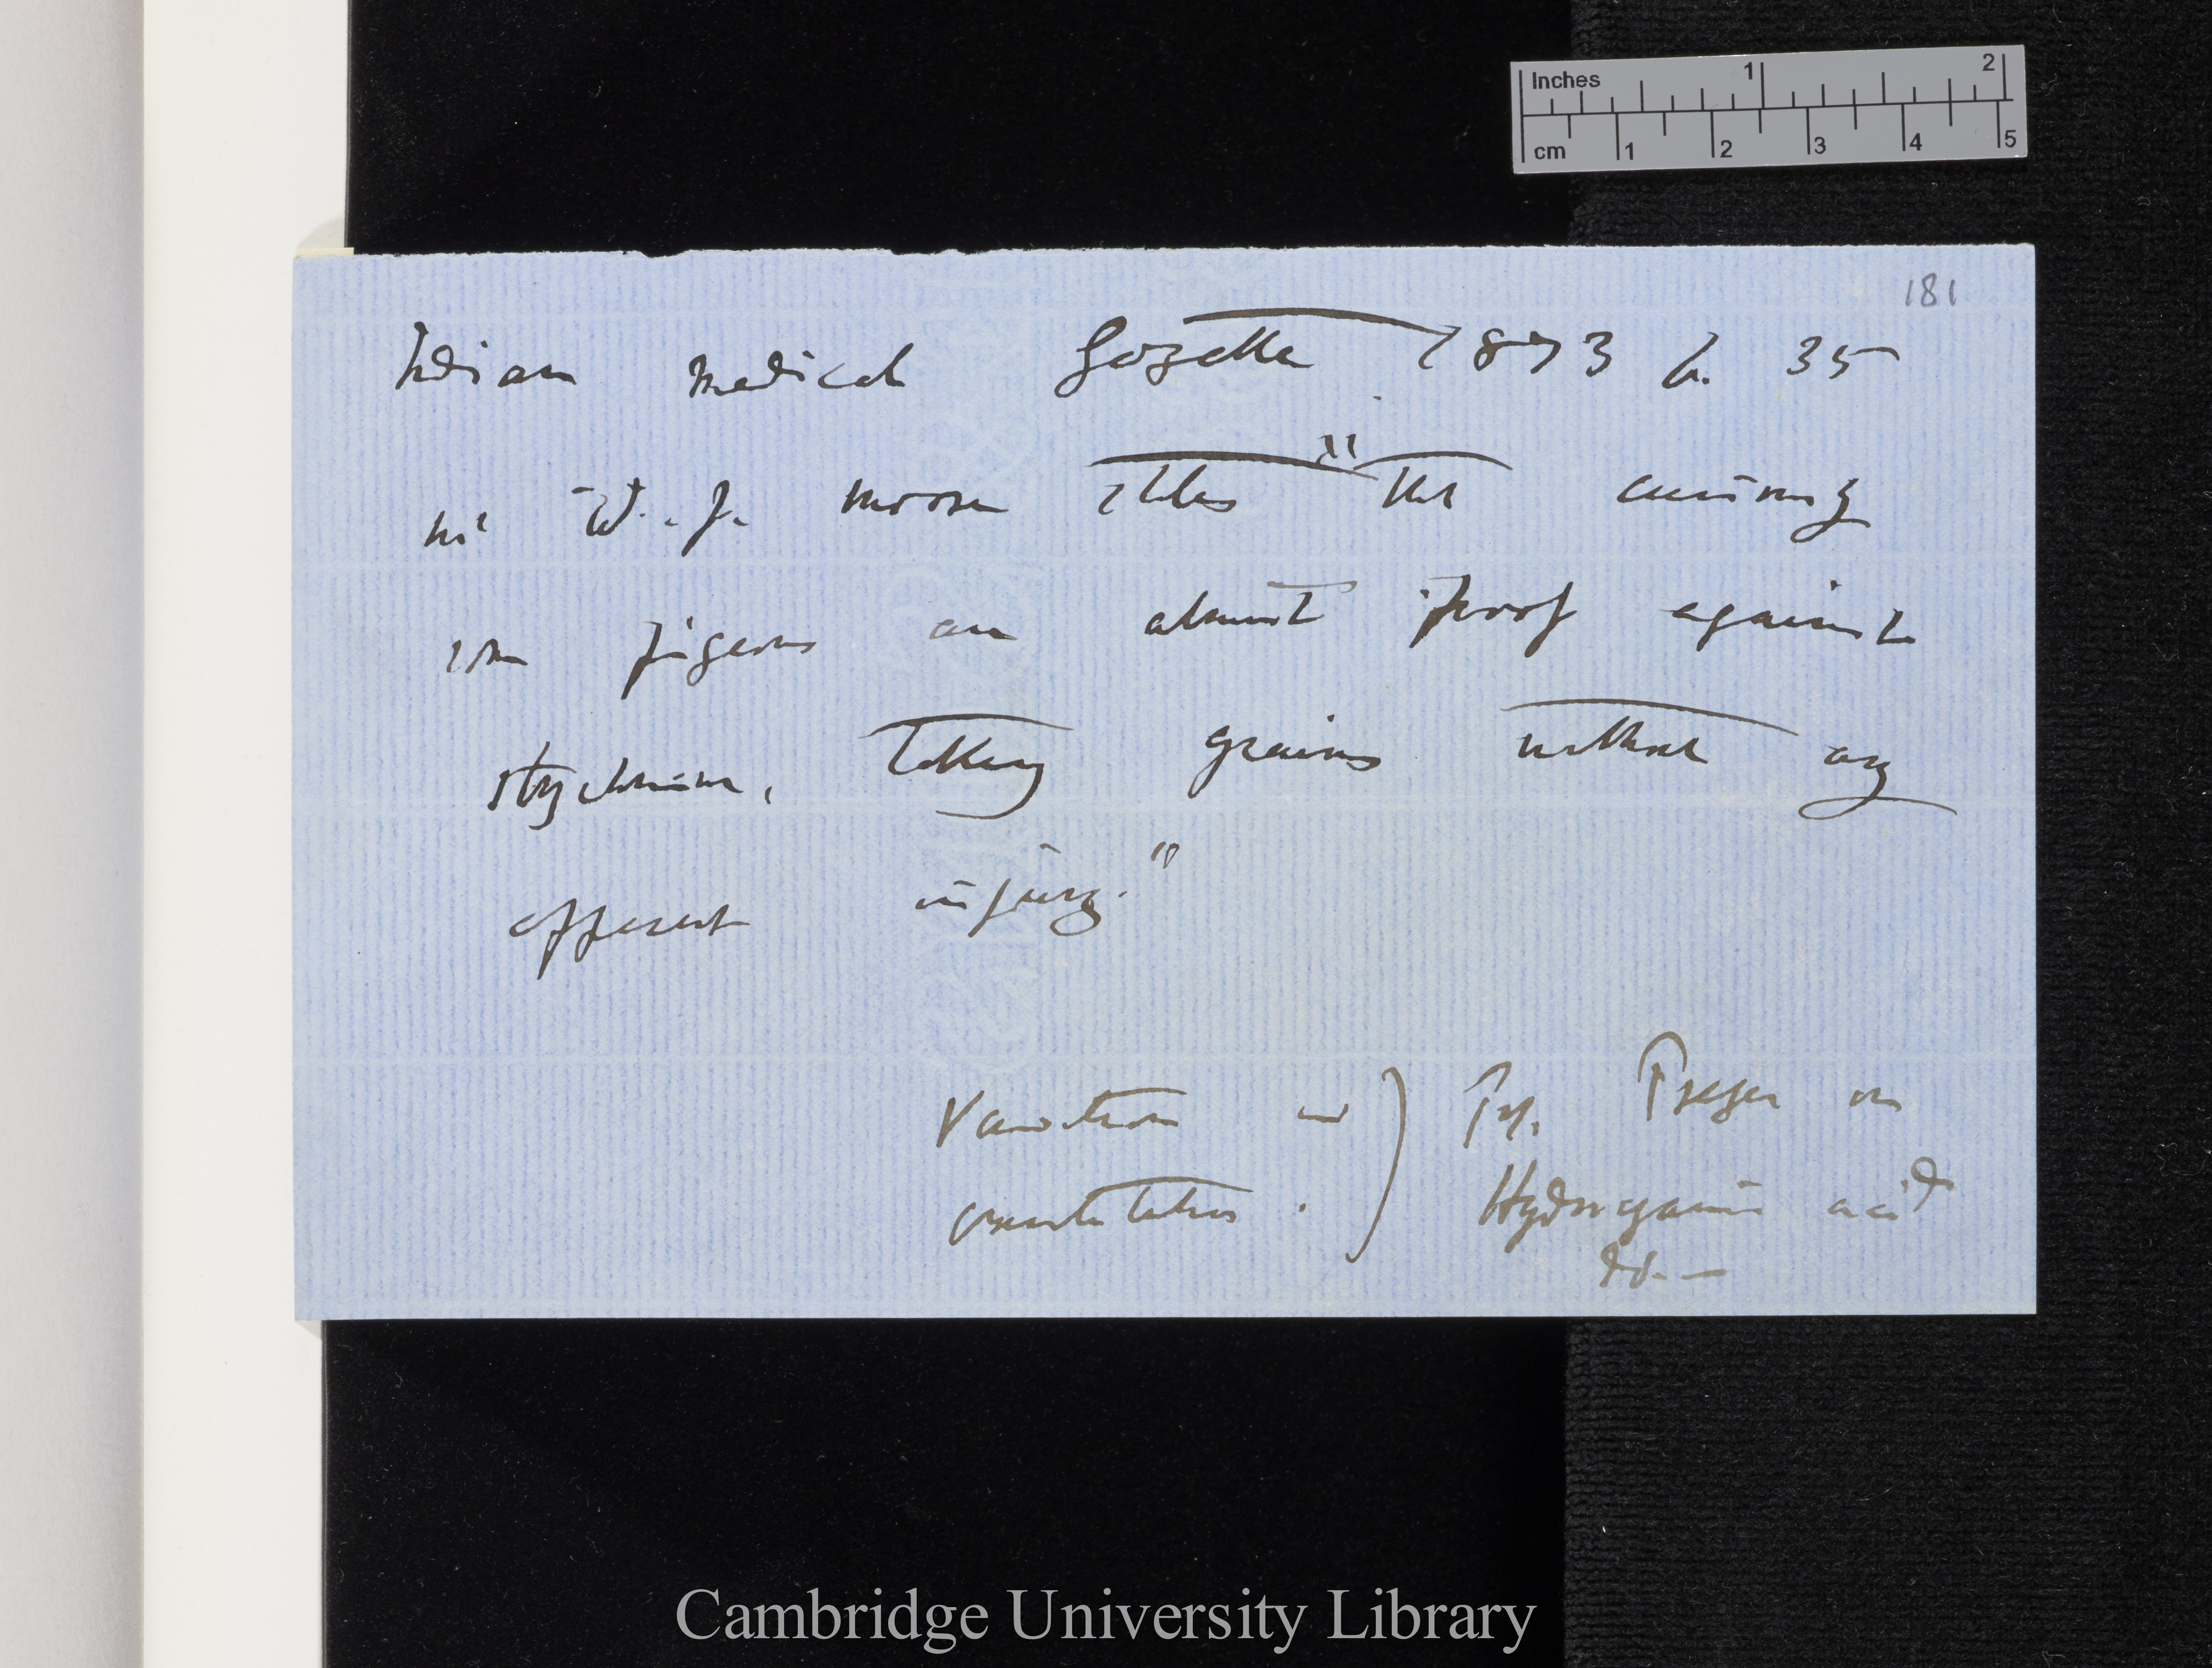 Inches 1 2
cm 1 2 3 4 5
181
Indian Medical Gazette 1873 p. 35
Mr W. J. Moore states "that curiously
some pigeons are almost proof against
strychnine, taking grains without any
apparent injury."
Variation in ) Prof. Preyer on
constitution. ) Hydrocyanic acid
do.—
Cambridge University Library